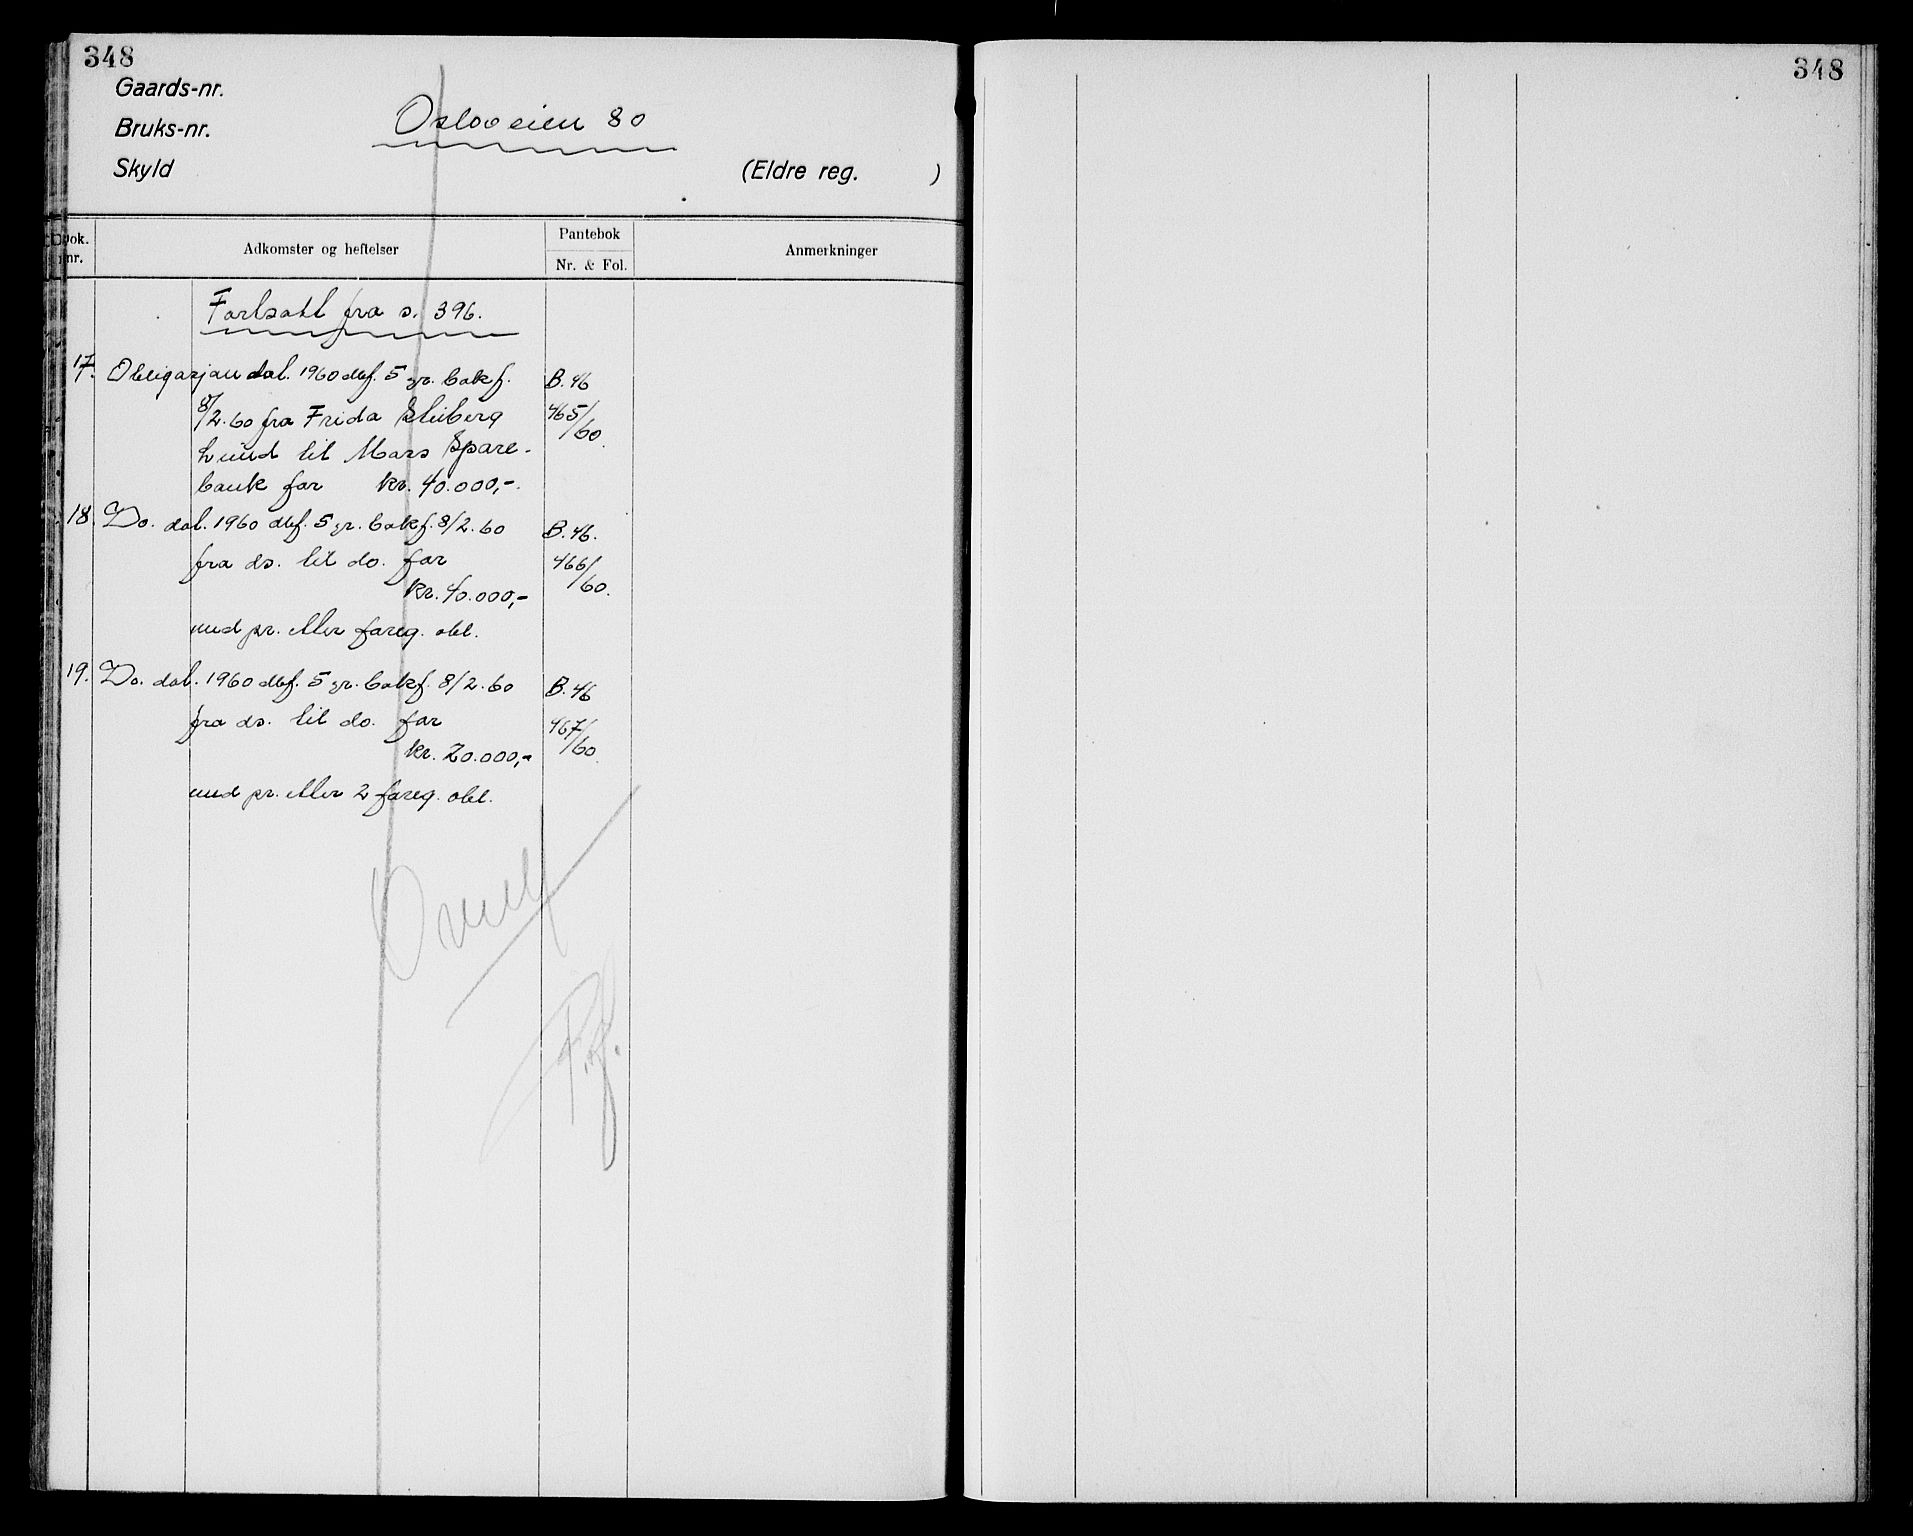 348
Gaards-nr.
Bruks-nr.
Osloveien 80
Skyld
(Eldre reg. )
Dok. nr.
Adkomster og heftelser
Pantebok
Nr. & Fol.
Anmerkninger
Fortsatt fra s. 396.
17. Obligasjon dat. 1960 dbf. 5 gr. bakf. B.46
8/2.60 fra Frida Sleiberg 465/60.
Lund til Moss Spare-
bank for kr. 40.000,-.
18. Do. dat. 1960 dbf. 5 gr. bakf. 8/2.60 B.46.
fra ds. til do. for 466/60.
kr. 40.000,-
med pr. etter foreg. obl.
19. Do. dat. 1960 dbf. 5 gr. bakf. 8/2.60 B.46
fra ds. til do. for 467/60.
kr. 20.000,-
med pr. etter 2 foreg. obl.
348